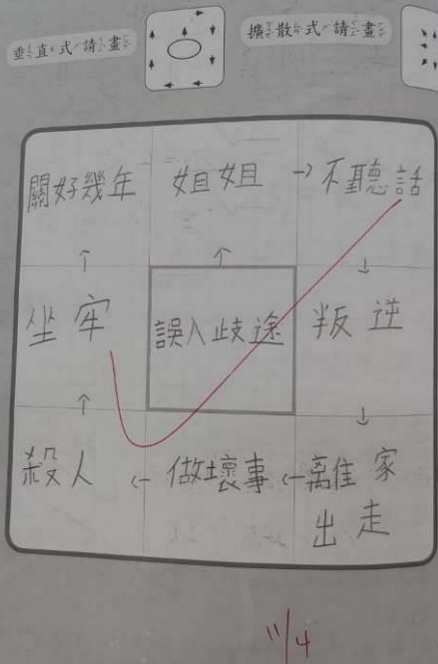 垂直式請畫
擴散式請畫
關好幾年 姐姐 → 不聽話
↑ ↑ ↓
坐牢 誤入歧途 叛逆
↑ ↓
殺人 ← 做壞事 ← 離家
出走
11/4